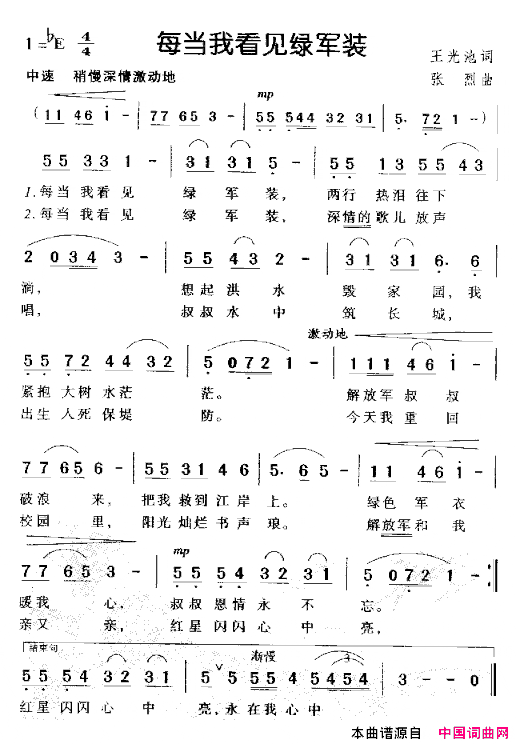 1=♭E 4/4 每当我看见绿军装
王光池词
中速 稍慢深情激动地 张烈曲
mp
( 11 46 i - | 77 65 3 - | 55 554 32 31 | 5. 72 1 - )
55 33 1 - | 31 31 5 - | 55 13 55 43
1.每当 我看 见 绿 军 装， 两行 热泪 往下
2.每当 我看 见 绿 军 装， 深情的 歌儿 放声
2 034 3 - | 55 43 2 - | 31 31 6. 6
滴， 想起 洪 水 毁 家 园，我
唱， 叔叔 水 中 筑 长 城，
激动地
55 72 44 72 | 5 072 1 - | 111 46 i -
紧抱 大树 水茫 茫。 解放军 叔 叔
出生 人死 保堤 防。 今天我 重 回
77 65 6 - | 55 31 4 6 | 5. 6 5 - | 11 46 i -
破浪 来， 把我 救到 江 岸 上。 绿色 军 衣
校园 里， 阳光 灿烂 书 声 琅。 解放军和 我
mp
77 65 3 - | 55 54 32 31 | 5 072 1 - :||
暖我 心， 叔叔 恩情 永 不 忘。
亲又 亲， 红星 闪闪 心 中 亮，
结束句 渐慢 3
55 54 32 31 | 5 5 55 54 | 5 - - - ||
红星 闪闪 心 中 亮，永 在我 心中
本曲谱源自 中国词曲网